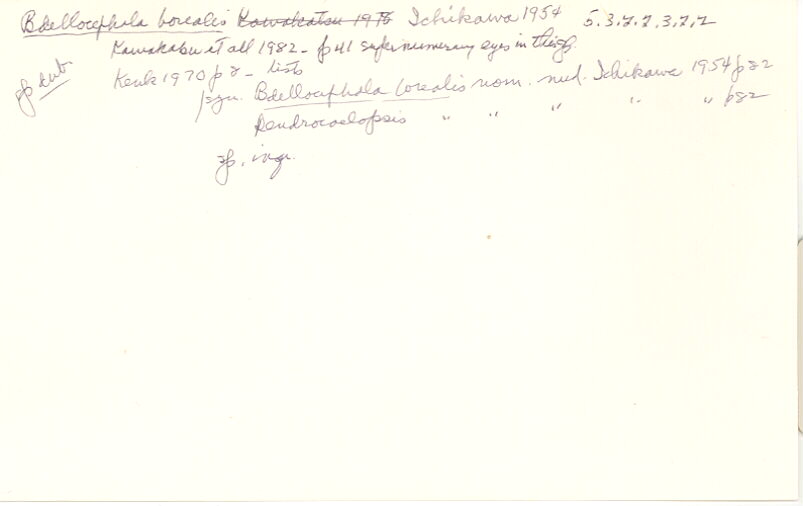 Bdellocephala borealis Kawakatsu 1978 Ichikawa 1954 5.3.2.2.3.2.2
Kawakatsu et all 1982 - p41 supernumerary eyes in this sp.
sp dub
Kenk 1970 p 8 - lists
syn. Bdellocephala borealis nom. nud. Ichikawa 1954 p82
Dendrocoelopsis " " " " " p82
sp. inq.